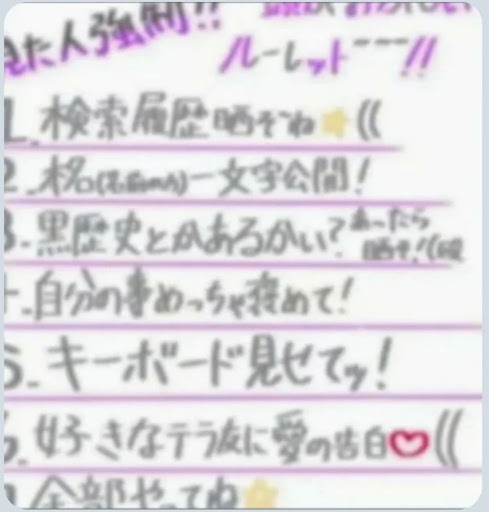 見た人強制!!
ルーレット---!!
1.検索履歴晒そね((
2.本名(名前のみ)一文字公開!
3.黒歴史とかあるかい?あったら
晒そ!((殴
4.自分の事めっちゃ褒めて!
5.キーボード見せてッ!
6.好きなテラ友に愛の告白♡((
全部やってね